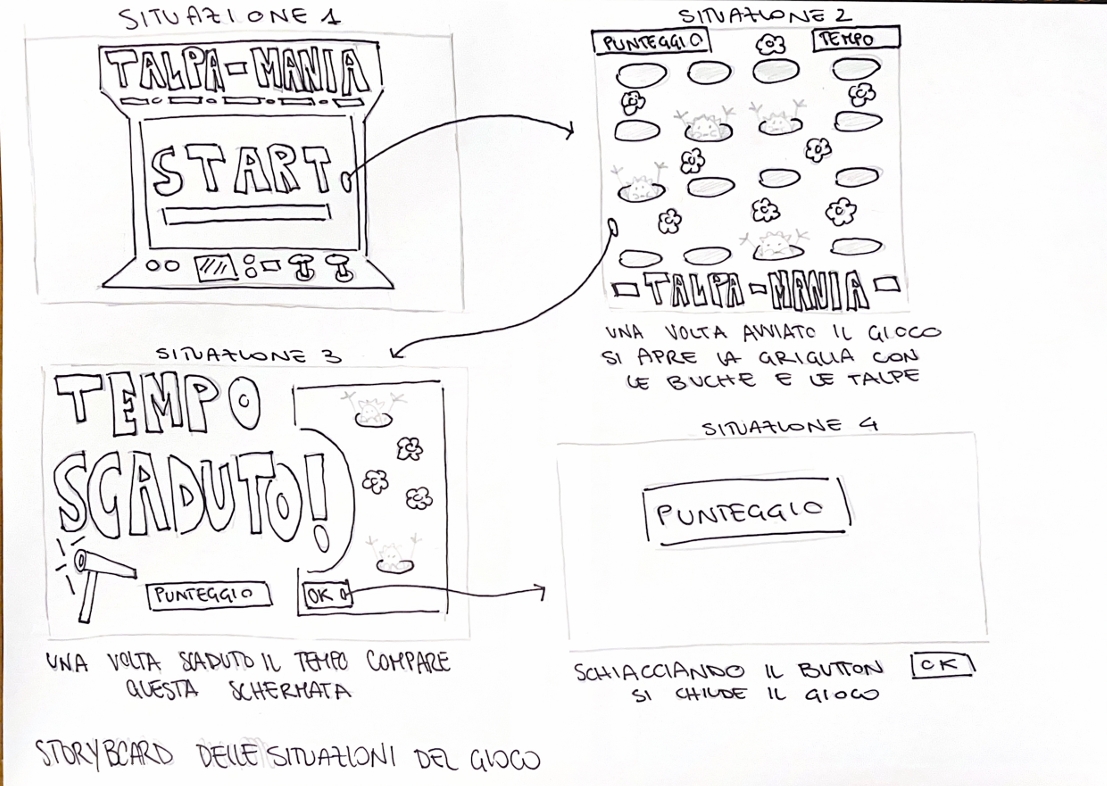 SITUAZIONE 1
TALPA-MANIA
START
SITUAZIONE 2
PUNTEGGIO
TEMPO
TALPA-MANIA
UNA VOLTA AVVIATO IL GIOCO
SI APRE LA GRIGLIA CON
LE BUCHE E LE TALPE
SITUAZIONE 3
TEMPO
SCADUTO!
PUNTEGGIO
OK
UNA VOLTA SCADUTO IL TEMPO COMPARE
QUESTA SCHERMATA
SITUAZIONE 4
PUNTEGGIO
SCHIACCIANDO IL BUTTON OK
SI CHIUDE IL GIOCO
STORYBOARD DELLE SITUAZIONI DEL GIOCO